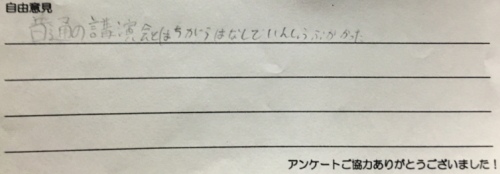 自由意見
普通の講演会とはちがうはなしでいんしょうぶかかった
アンケートご協力ありがとうございました！